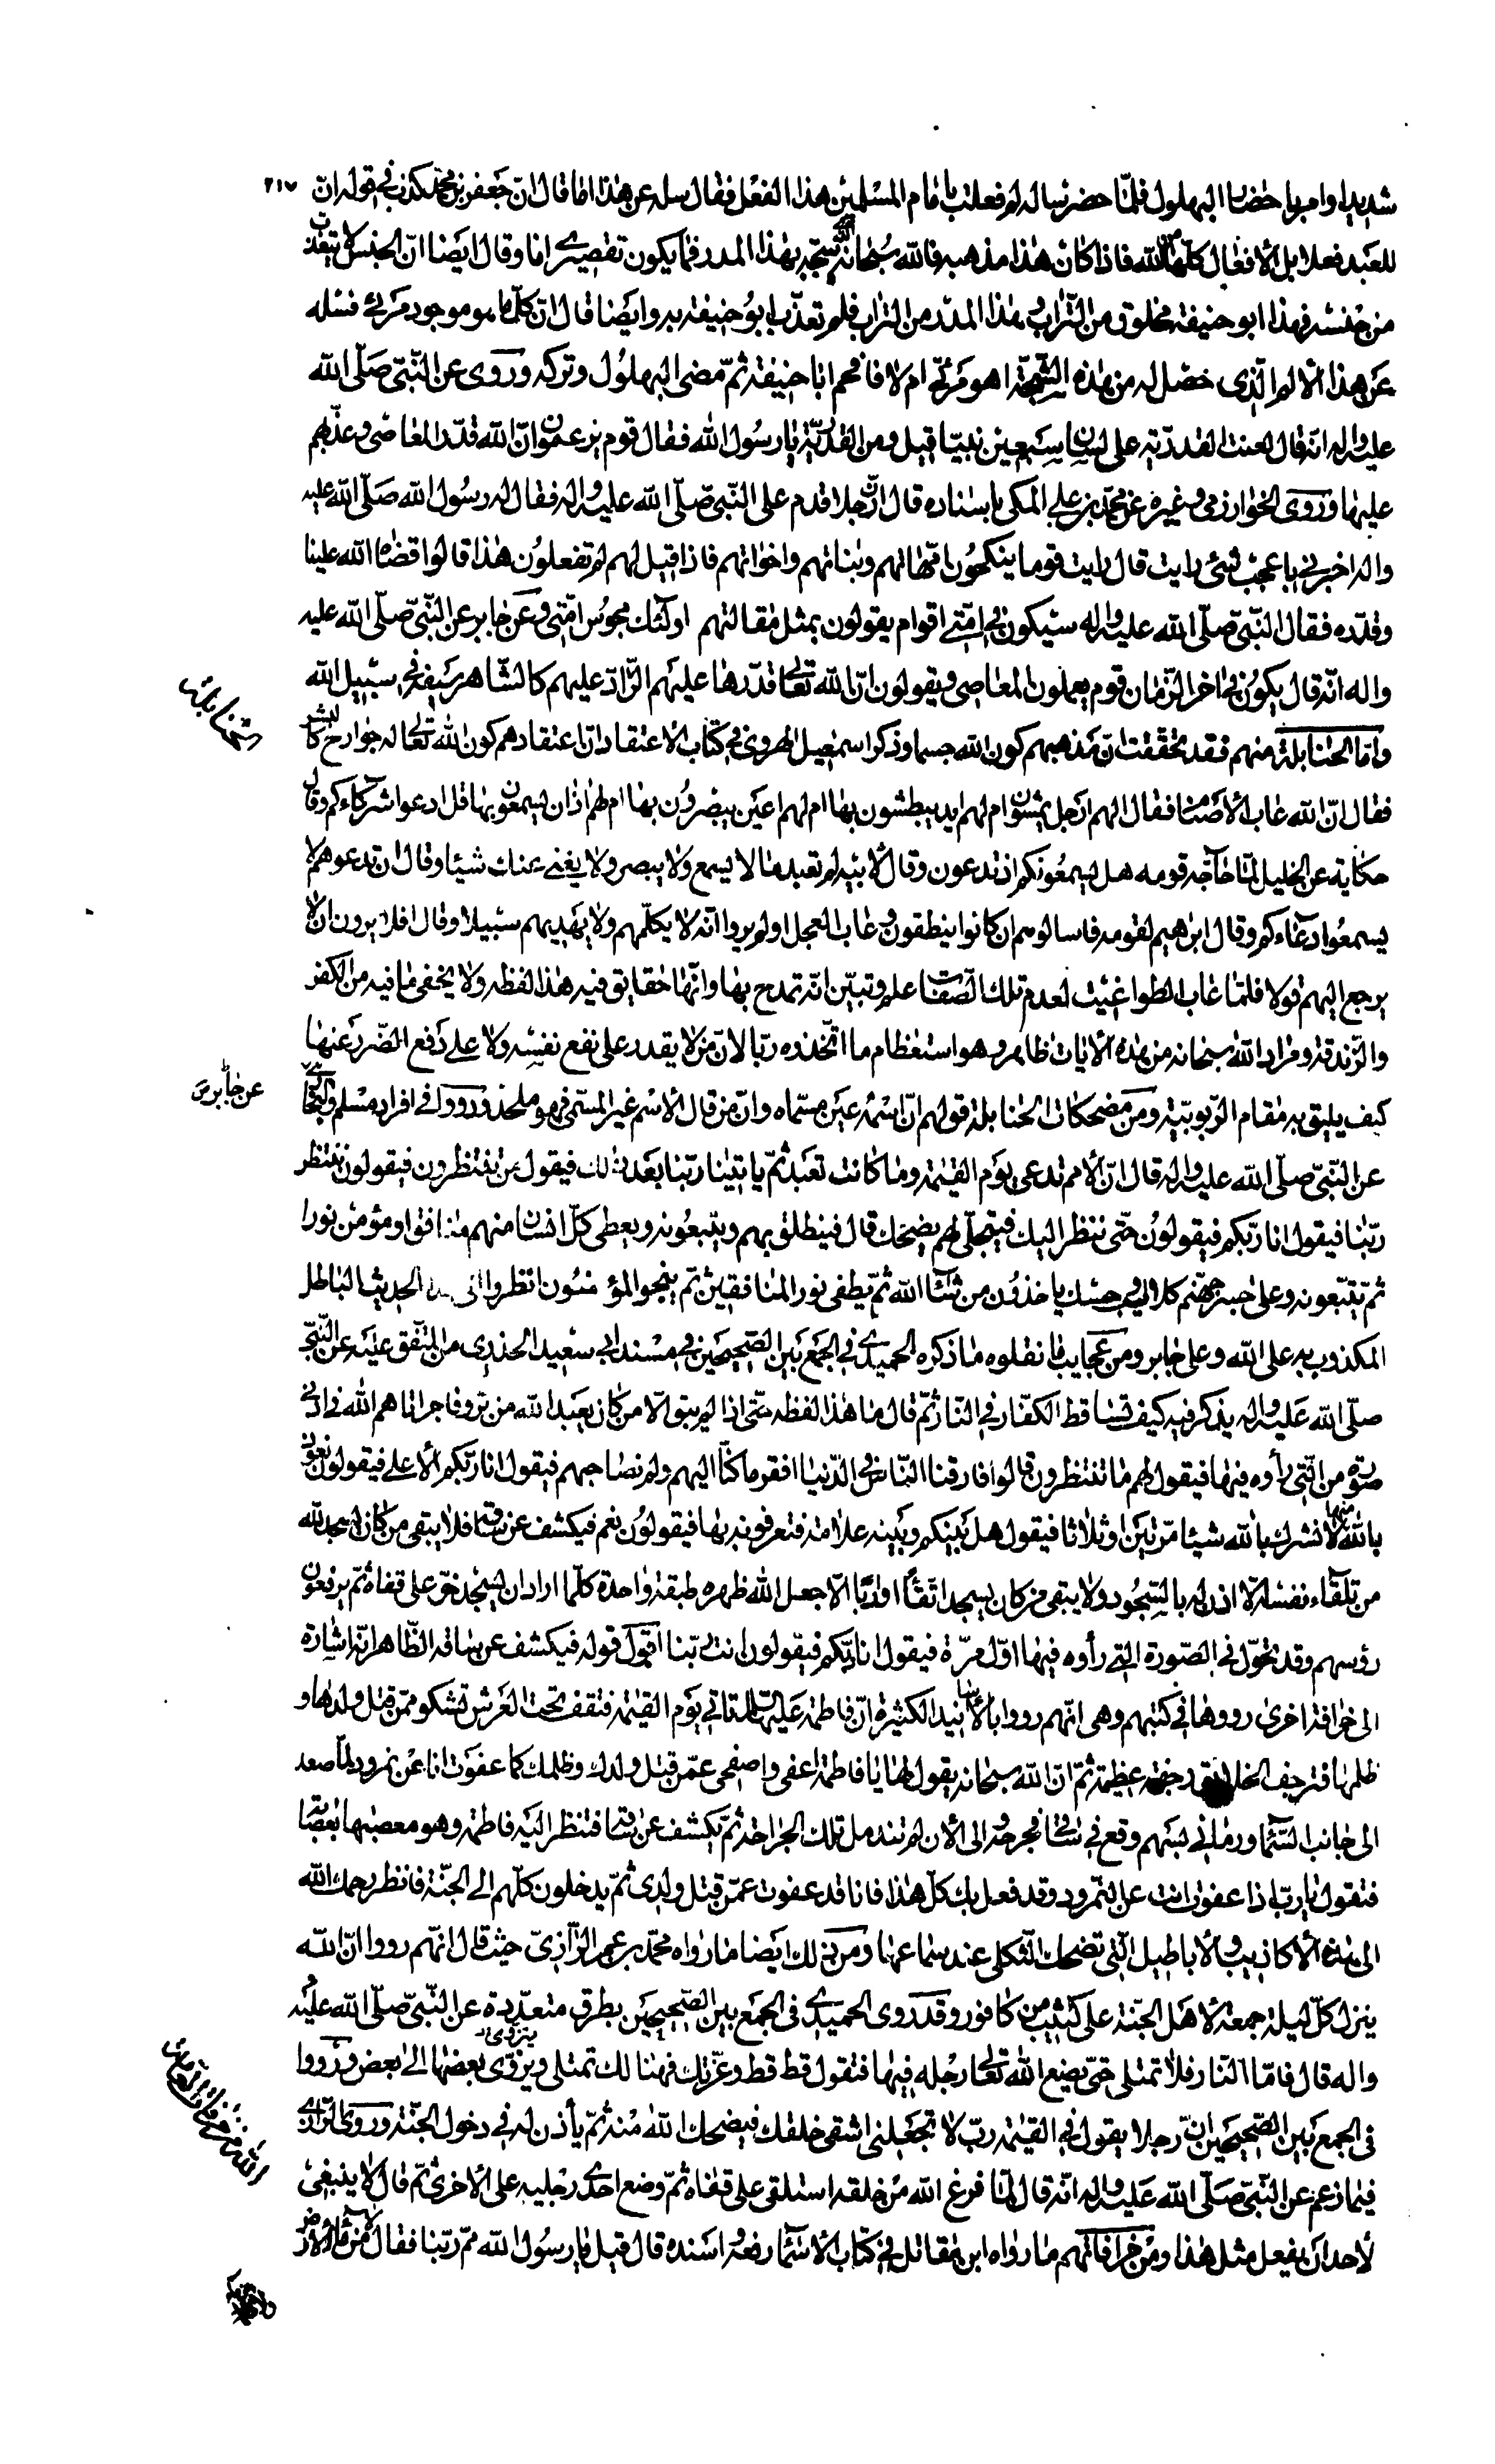 ٢١٧
شديدا وامر باحضار البهلول فلمّا حضر سأله لم فعلت بامام المسلمين هذا الفعل فقال سله عن هذا اما قال انّ جعفر بن محمّد يكذب في قوله انّ
للعبد فعلا بل الأفعال كلّها من الله فاذا كان هذا مذهبه فالله سبحانه شجّه بهذا المدر فما يكون تقصيري انا وقال ايضا انّ الجنس لا يتعذب
من جنسه فهذا ابو حنيفة مخلوق من التراب وهذا المدر من التراب فلم تعذّب ابو حنيفة به وايضا قال انّ كلّ ما هو موجود مرئي فسله
عن هذا الالم الّذي حصل له من هذه الشجّة اهو مرئي ام لا فافحم ابا حنيفة ثمّ مضى البهلول وتركه وروى عن النّبيّ صلّى الله
عليه واله انّه قال لعنت القدريّة على لسان سبعين نبيّا قيل ومن القدريّة يا رسول الله فقال قوم يزعمون انّ الله قدّر المعاصي وعذّبهم
عليها وروى الخوارزمي وغيره عن محمّد بن علي المكي باسناده قال انّ رجلا قدم على النّبيّ صلّى الله عليه واله فقال له رسول الله صلّى الله عليه
واله اخبرني باعجب شئ رايت قال رايت قوما ينكحون امّهاتهم وبناتهم واخواتهم فاذا قيل لهم لم تفعلون هذا قالوا قضاه الله علينا
وقدّره فقال النّبيّ صلّى الله عليه واله سيكون في امّتي اقوام يقولون بمثل مقالتهم اولئك مجوس امّتي وعن جابر عن النّبيّ صلّى الله عليه
واله انّه قال يكون في اخر الزّمان قوم يعملون المعاصي ويقولون انّ الله تعالى قدّرها عليهم الرّادّ عليهم كالشّاهر سيفه في سبيل الله
وامّا الحنابلة منهم فقد تحققت انّ مذهبهم كون الله جسما وذكر اسمعيل الهروي في كتاب الاعتقاد انّ اعتقادهم كون الله تعالى له جوارح كالبشر
فقال انّ الله عاب الأصنام فقال الهم ارجل يمشون ام لهم ايد يبطشون بها ام لهم اعين يبصرون بها ام لهم اذان يسمعون بها قل ادعوا شركاءكم وقال
حكاية عن الخليل لمّا حآجّه قومه هل يسمعونكم اذ تدعون وقال لأبيه لم تعبد ما لا يسمع ولا يبصر ولا يغني عنك شيئا وقال ان تدعوهم لا
يسمعوا دعاءكم وقال ابرهيم لقومه فاسالوهم ان كانوا ينطقون وعاب العجل اولم يروا انّه لا يكلّمهم ولا يهديهم سبيلا وقال افلا يرون ان لا
يرجع اليهم قولا فلمّا عاب الطواغيت لعدم تلك الصّفات علم وتبيّن انّه تمدح بها وانّها حقايق فيه هذا لفظه ولا يخفى ما فيه من الكفر
والزّندقة ومراد الله سبحانه من هذه الأيات ظاهر وهو استعظام ما اتّخذوه ربّا لانّ من لا يقدر على نفع نفسه ولا على دفع الضّرر عنها
كيف يليق به مقام الرّبوبيّة ومن مضحكات الحنابلة قولهم انّ اسمه عين مسمّاه وانّ من قال الأسم غير المسمّى فهو ملحد ورووا في افراد مسلم
عن النّبيّ صلّى الله عليه واله قال انّ الأمم تدعى يوم القيمة وما كانت تعبد ثمّ ياتينا ربّنا بعد ذلك فيقول من تنتظرون فيقولون ننتظر
ربّنا فيقول انا ربّكم فيقولون حتّى ننظر اليك فيتجلّى لهم يضحك قال فينطلق بهم ويتبعونه ويعطى كلّ انسان منهم منافق او مؤمن نورا
ثمّ يتّبعونه وعلى جسر جهنّم كلاليب وحسك ياخذون من شآء الله ثمّ يطفى نور المنافقين ثمّ ينجو المؤمنون انظروا الى هذا الحديث الباطل
المكذوب به على الله وعلى جابر ومن عجايب ما نقلوه ما ذكره الحميدي في الجمع بين الصّحيحين في مسند ابي سعيد الخدري من المتّفق عليه عن النّبيّ
صلّى الله عليه واله يذكر فيه كيف تساقط الكفّار في النّار ثمّ قال ما هذا لفظه حتّى اذا لم يبق الّا من كان يعبد الله من برّ وفاجر اتاهم الله في ادنى
صورة من الّتي رأوه فيها فيقول لهم ما تنتظرون قالوا فارقنا النّاس في الدّنيا افقر ما كنّا اليهم ولم نصاحبهم فيقول انا ربّكم الأعلى فيقولون نعوذ
بالله منك لا نشرك بالله شيئا مرّتين او ثلاثا فيقول هل بينكم وبينه علامة فتعرفونه بها فيقولون نعم فيكشف عن ساقه فلا يبقى من كان يسجد لله
من تلقاء نفسه الّا اذن له بالسّجود ولا يبقى من كان يسجد اتّقاء او ريّا الّا جعل الله ظهره طبقة واحدة كلّما اراد ان يسجد خرّ على قفاه ثمّ يرفعون
رؤسهم وقد تحوّل في الصّورة الّتي رأوه فيها اوّل مرّة فيقول انا ربّكم فيقولون انت ربّنا اقول قوله فيكشف عن ساقه الظّاهر انّه اشارة
الى خرافة اخرى رووها في كتبهم وهى انّهم رووا بالأسانيد الكثيرة انّ فاطمة عليها السّلام تاتي يوم القيمة فتقف تحت العرش تشكو ممّن قتل ولدها و
ظلمها فترجف الخلايق رجفة عظيمة ثمّ انّ الله سبحانه يقول لها يا فاطمة اعفي واصفحي عمّن قتل ولدك وظلمك كما عفوت انا عن نمرود لمّا صعد
الى جانب السّمآء ورماني بسهم وقع في ساقي فجرحه والى الأن لم تندمل تلك الجراحة ثمّ يكشف عن ساقه فتنظر اليه فاطمة وهو معصبها بعصابة
فتقول يا ربّ اذا عفوت انت عن النّمرود وقد فعل بك كلّ هذا فانا قد عفوت عمّن قتل ولدي ثمّ يدخلون كلّهم الى الجنّة فانظر رحمك الله
الى هذه الأكاذيب والأباطيل الّتي تضحك الثّكلى عند سماعها ومن ذلك ايضا ما رواه محمّد بن عمر الرّازيّ حيث قال انّهم رووا انّ الله
ينزل كلّ ليلة جمعة لأهل الجنّة على كثيب من كافور وقد روى الحميدي في الجمع بين الصّحيحين بطرق متعدّدة عن النّبيّ صلّى الله عليه و
واله قال فامّا النّار فلا تمتلى حتّى يضع الله تعالى رجله فيها فتقول قط قط وعزّتك فهنالك تمتلى ويزوّى بعضها الى بعض ورووا
في الجمع بين الصّحيحين انّ رجلا يقول في القيمة ربّ لا تجعلني اشقى خلقك فيضحك الله منه ثمّ يأذن له في دخول الجنّة وروى الرّازي
فيما زعم عن النّبيّ صلّى الله عليه واله انّه قال لمّا فرغ الله من خلقه استلقى على قفاه ثمّ وضع احدى رجليه على الأخرى ثمّ قال لا ينبغي
لأحد ان يفعل مثل هذا ومن خرافاتهم ما رواه ابن مقاتل في كتاب الأسمآء رفعه واسنده قال قيل يا رسول الله ممّ ربّنا فقال
عن جابر